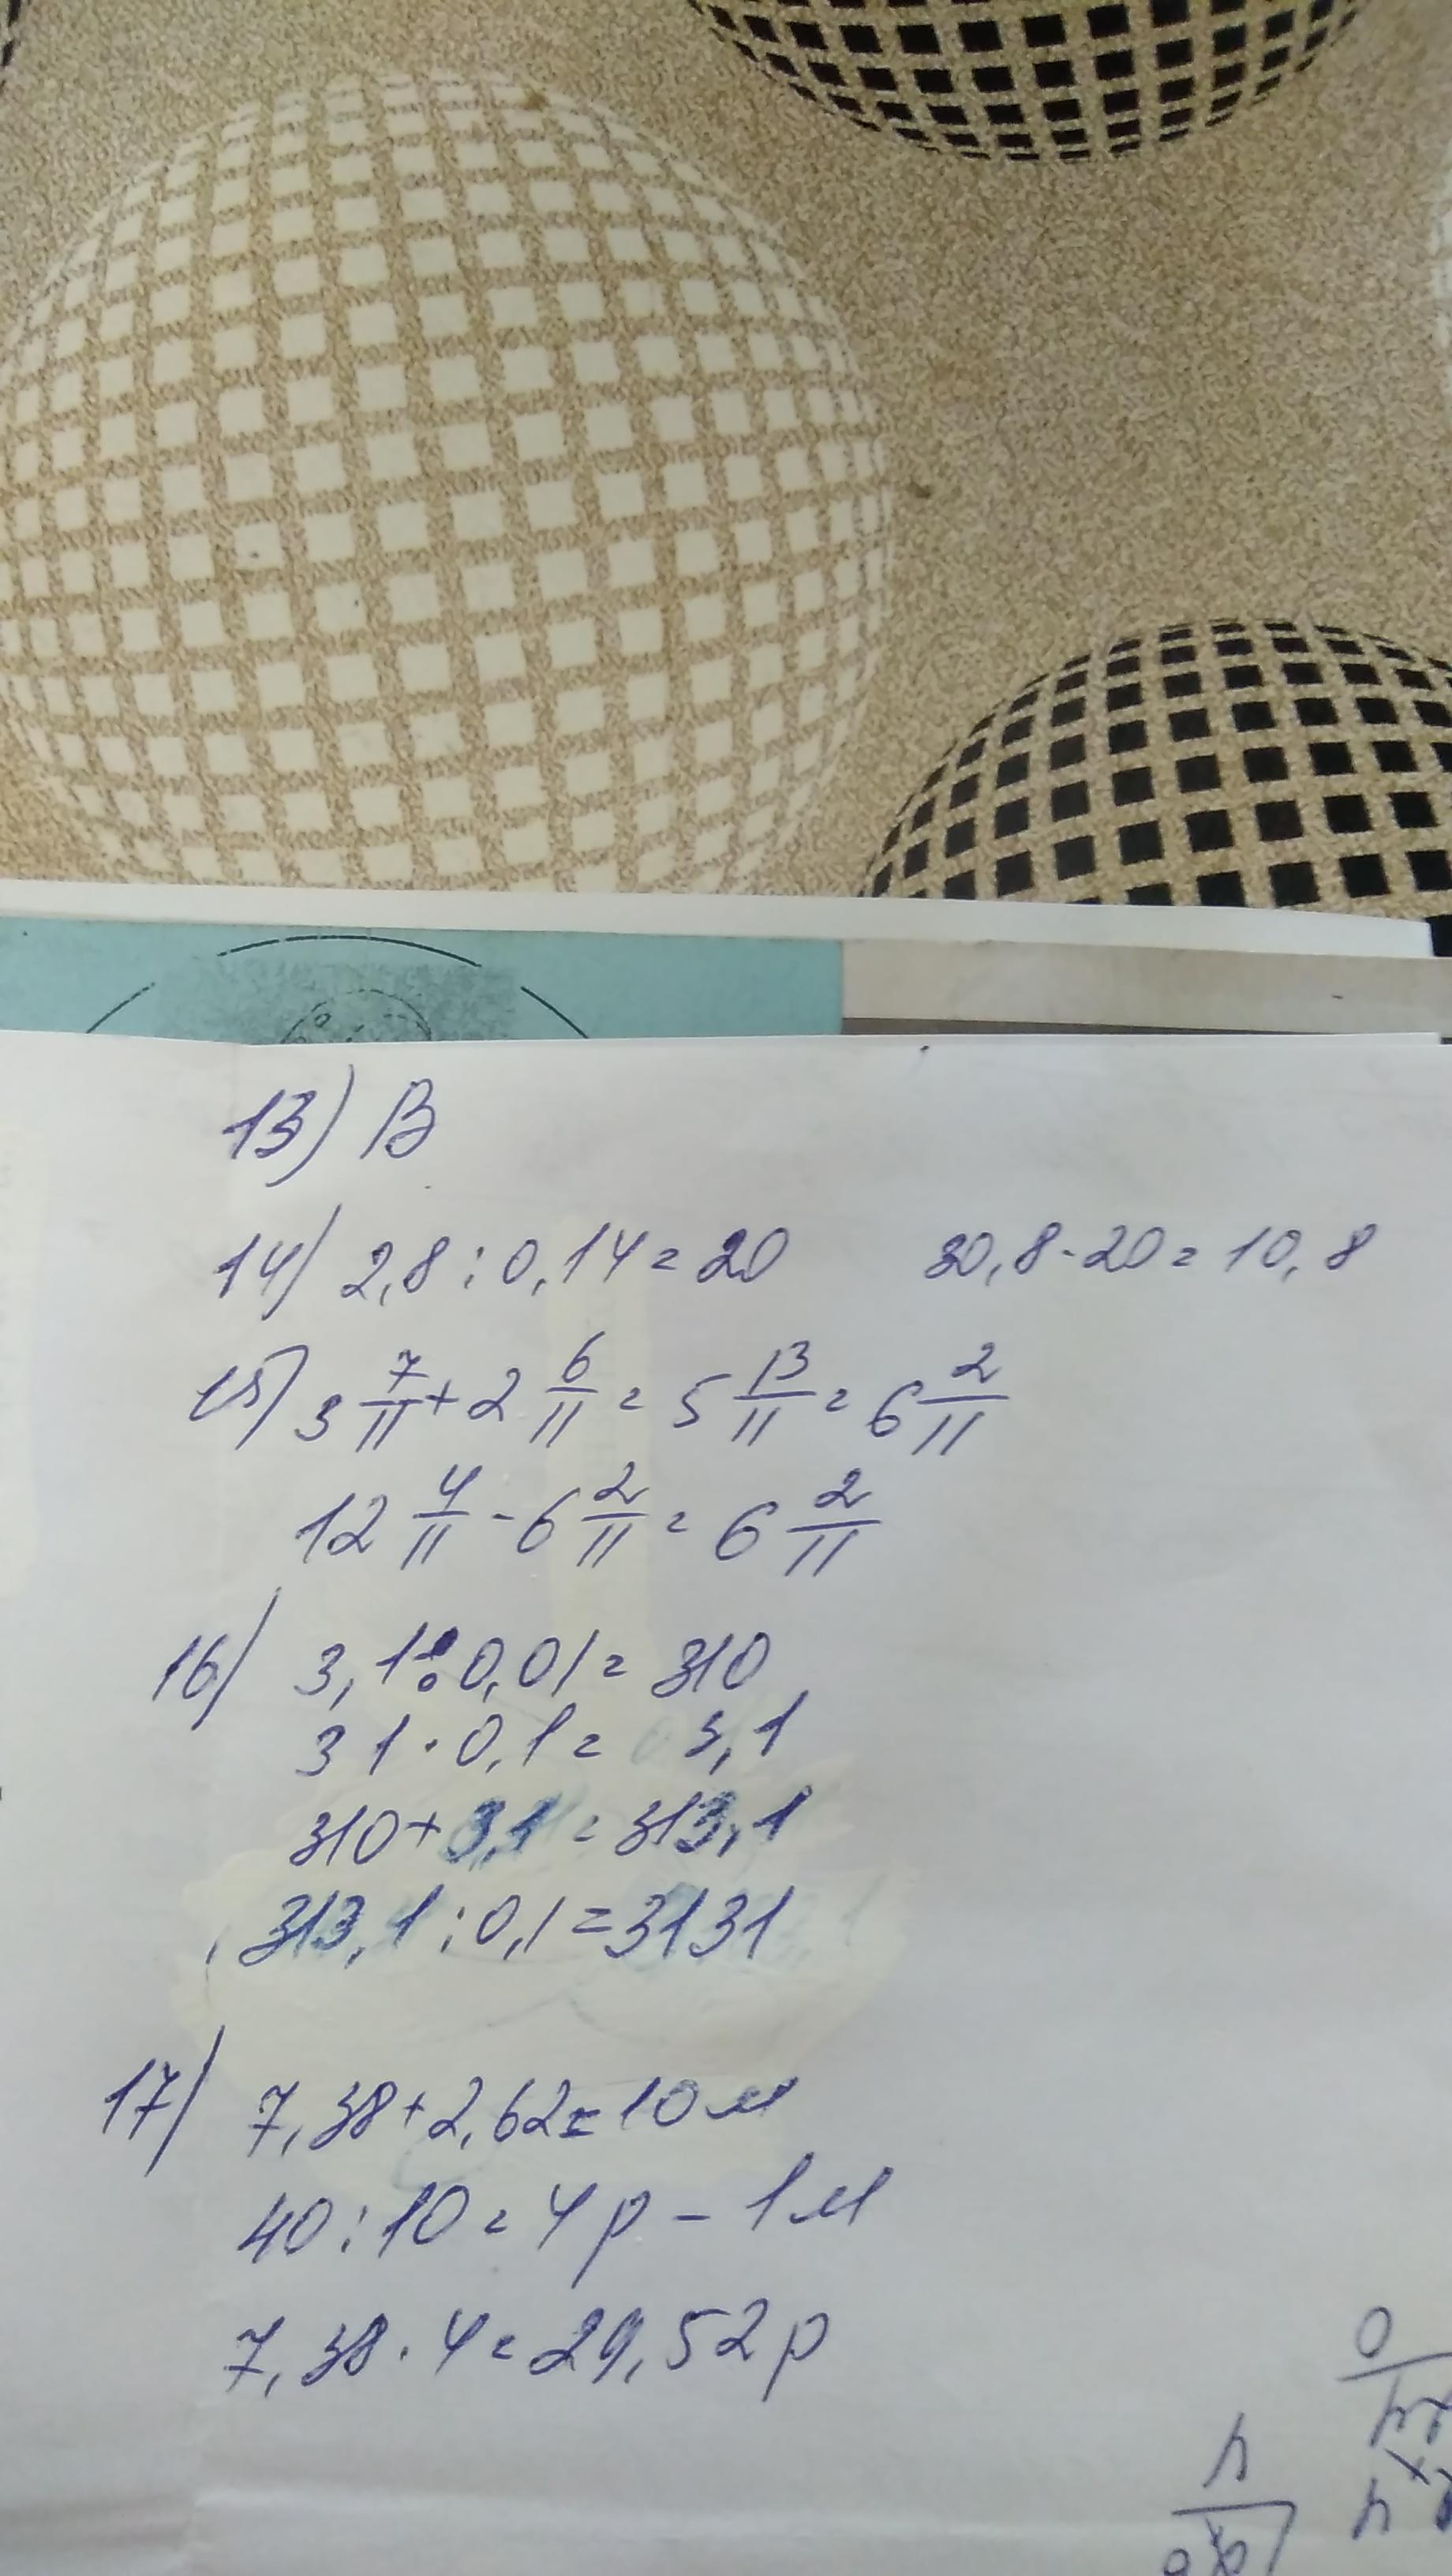 13) В
14) 2,8 : 0,14 = 20 30,8 - 20 = 10,8
15) 3 7/11 + 2 6/11 = 5 13/11 = 6 2/11
12 4/11 - 6 2/11 = 6 2/11
16) 3,1 : 0,01 = 310
31 · 0,1 = 3,1
310 + 3,1 = 313,1
313,1 : 0,1 = 3131
17) 7,38 + 2,62 = 10 м
40 : 10 = 4 р - 1 м
7,38 · 4 = 29,52 р